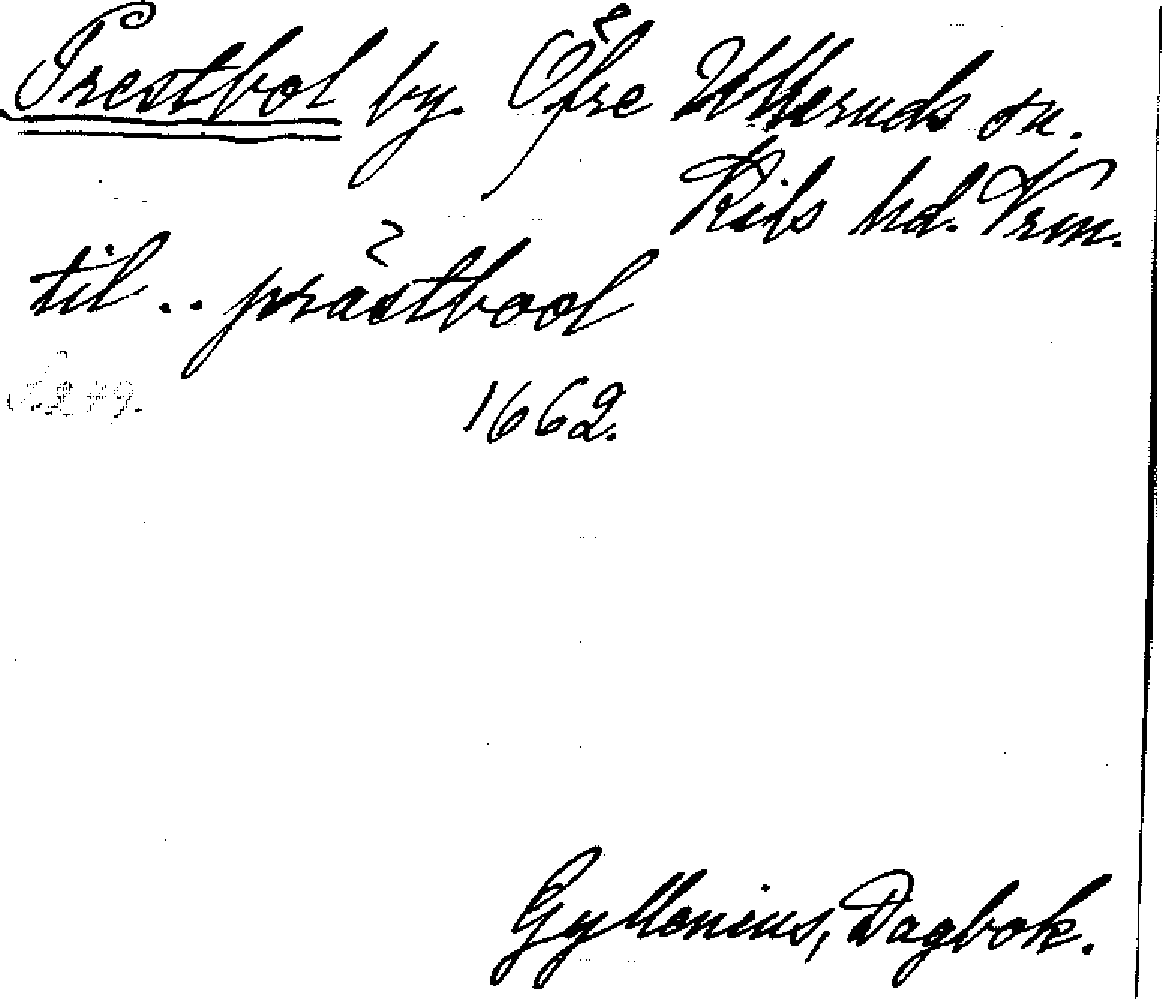 Prestbol by. Öfre Ulleruds sn.
Kils hd. Vrm.
til .. prästbool
1662.
Gyllenius, Dagbok.